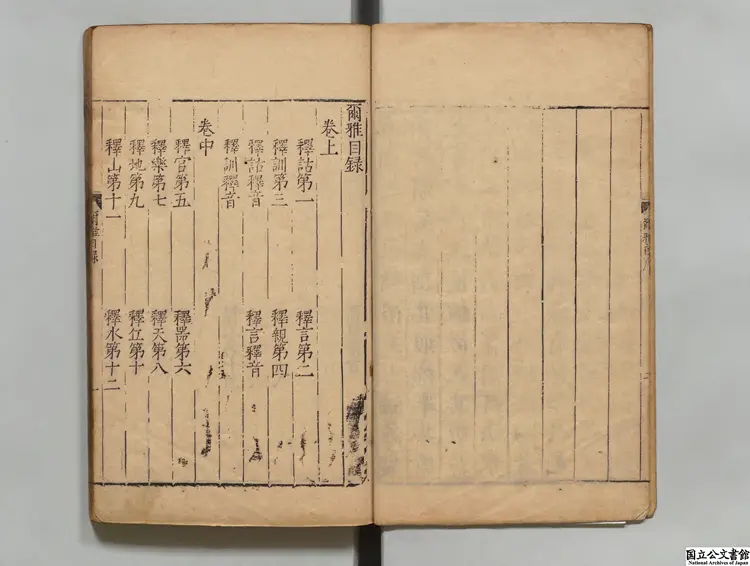 爾雅目録
卷上
釋詁第一 釋言第二
釋訓第三 釋親第四
釋詁釋音 釋言釋音
釋訓釋音
卷中
釋宮第五 釋器第六
釋樂第七 釋天第八
釋地第九 釋丘第十
釋山第十一 釋水第十二
爾雅目録
国立公文書館
National Archives of Japan